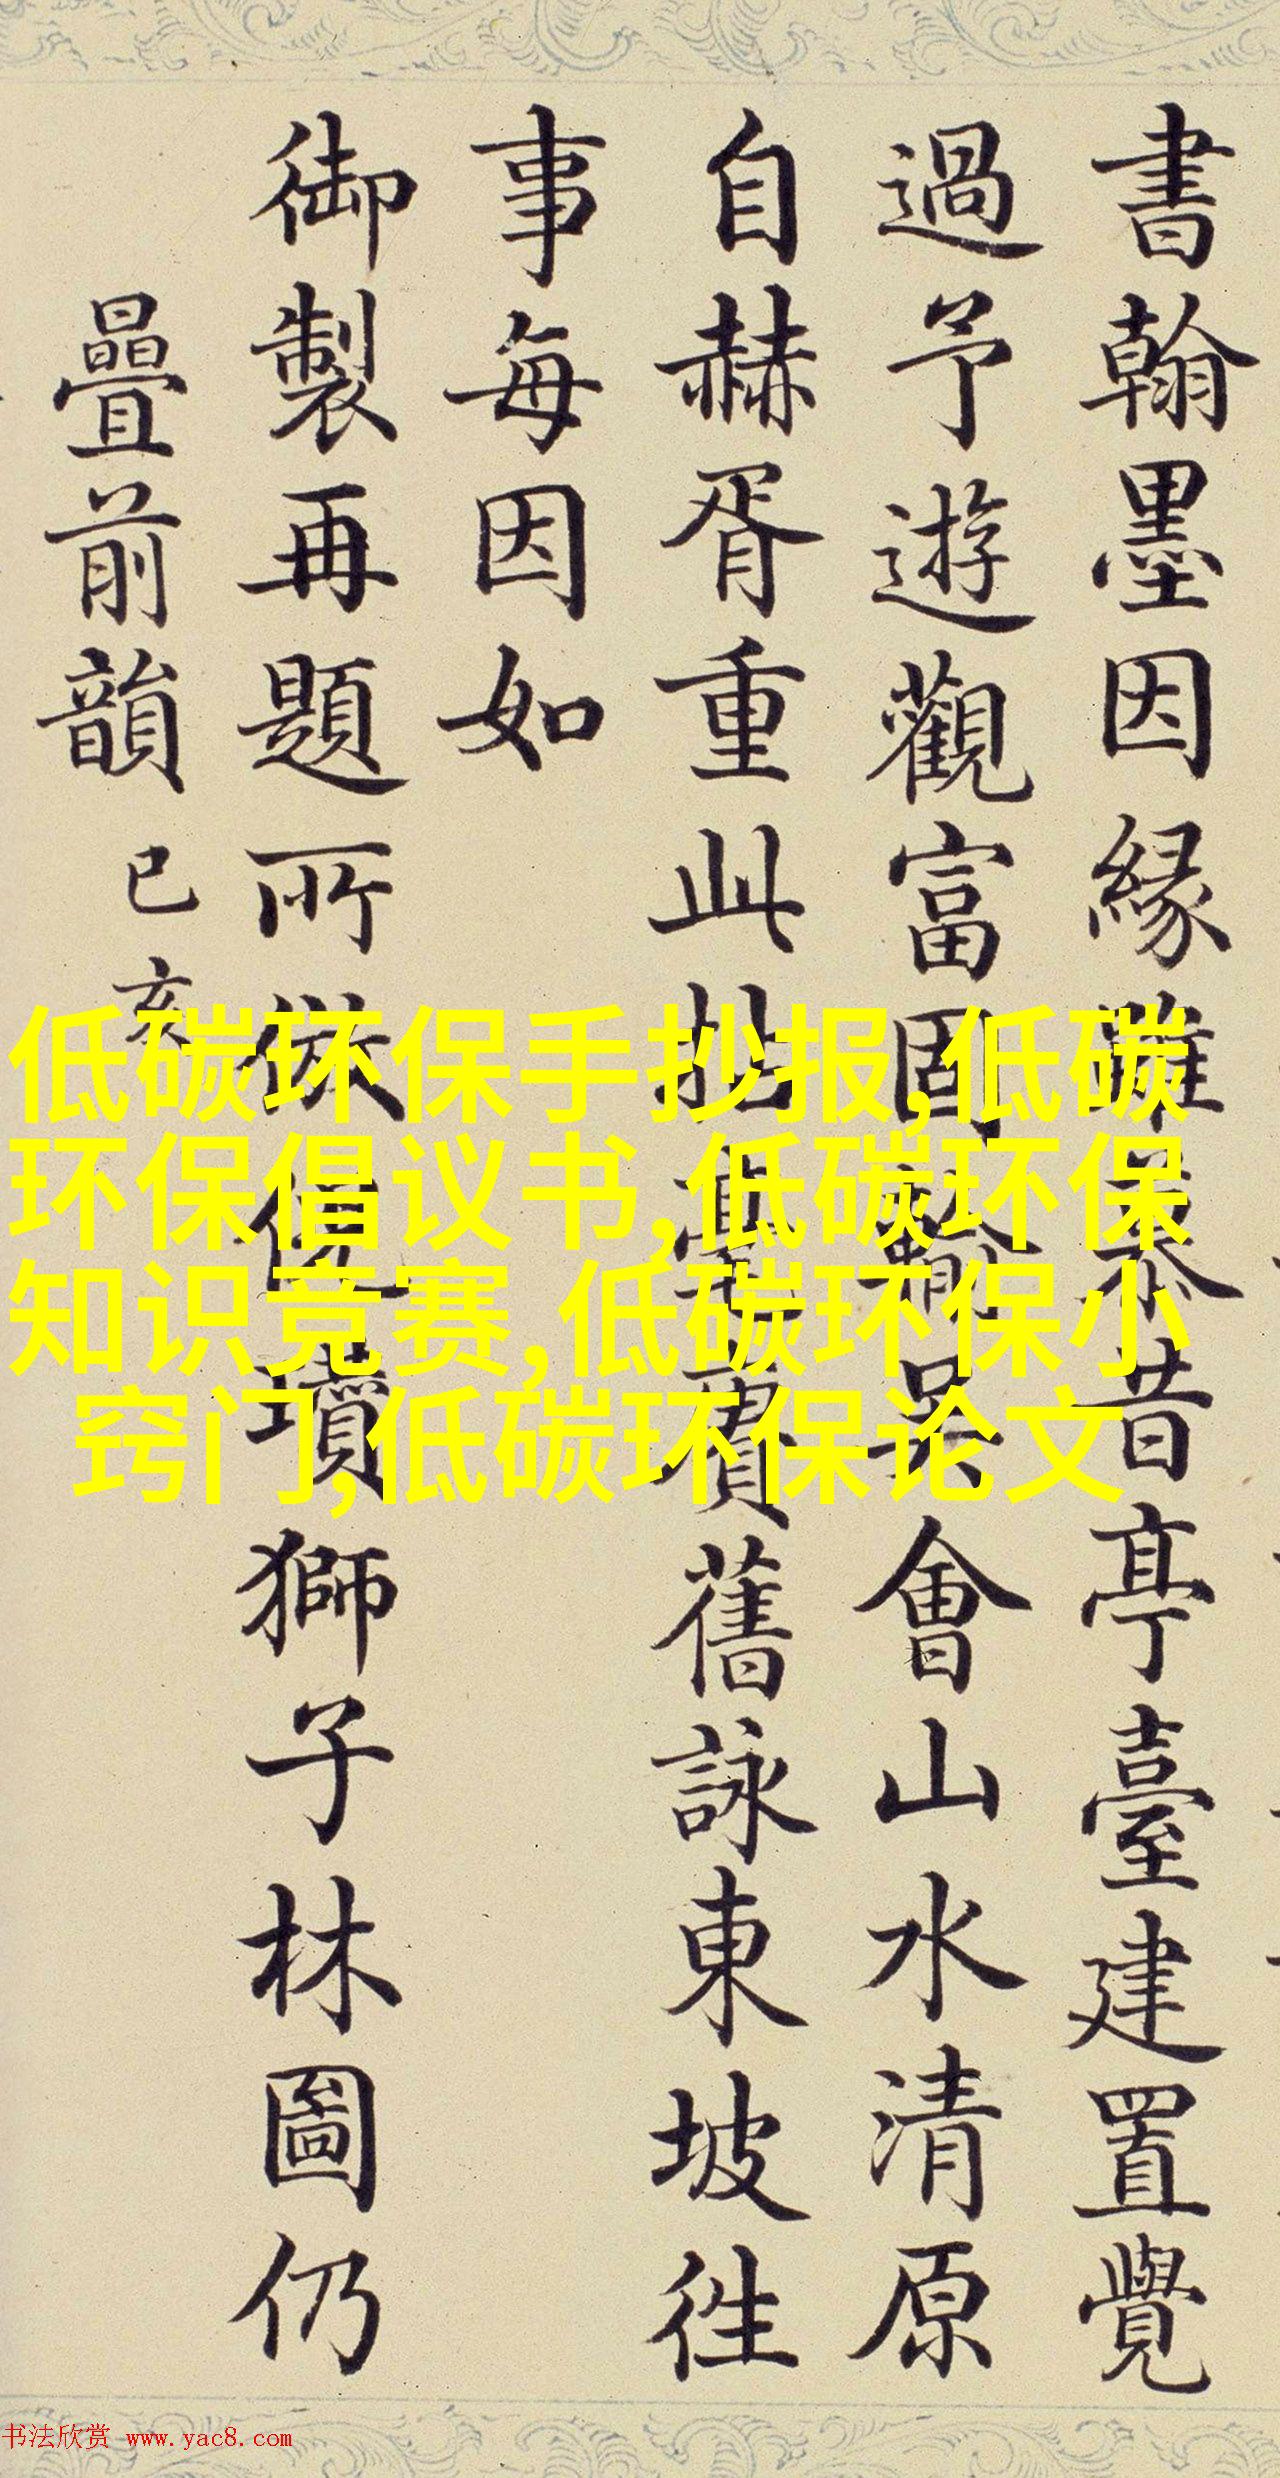 書翰墨因緣雖泰昔亭臺建置覺
過予遊觀富固輸吳會山水清原
自赫胥重此拈毫賡舊詠東坡徃
事每因如
御製再題所倣倪瓚獅子林圖仍
疊前韻己亥
低碳环保手抄报,低碳
环保倡议书,低碳环保
知识竞赛,低碳环保小
窍门,低碳环保论文
书法欣赏 www.yac8.com